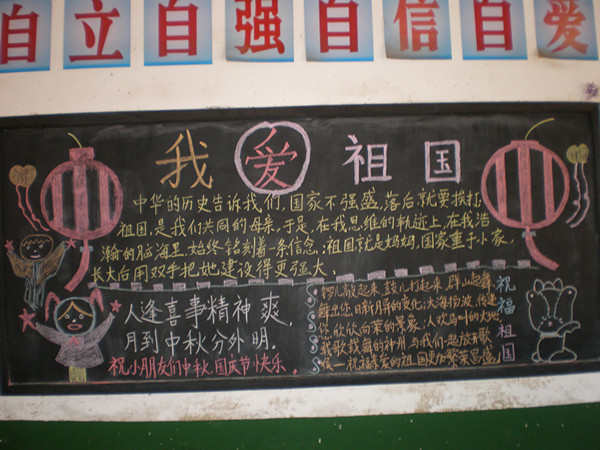 自立自强自信自爱
我爱祖国
中华的历史告诉我们,国家不强盛,落后就要挨打,
祖国,是我们共同的母亲,于是,在我思维的轨迹上,在我浩
瀚的脑海里,始终铭刻着一条信念:祖国就是妈妈,国家重于小家,
长大后用双手把她建设得更强大.
人逢喜事精神爽,
月到中秋分外明.
祝小朋友们中秋、国庆节快乐.
锣儿敲起来,鼓儿打起来,群山起舞
你日新月异的变化;大海扬波,传递
你欣欣向荣的景象,人欢马叫的大地
载歌载舞的神州,与我们一起放声歌
唱——祝福亲爱的祖国更加繁荣昌盛
祝福祖国